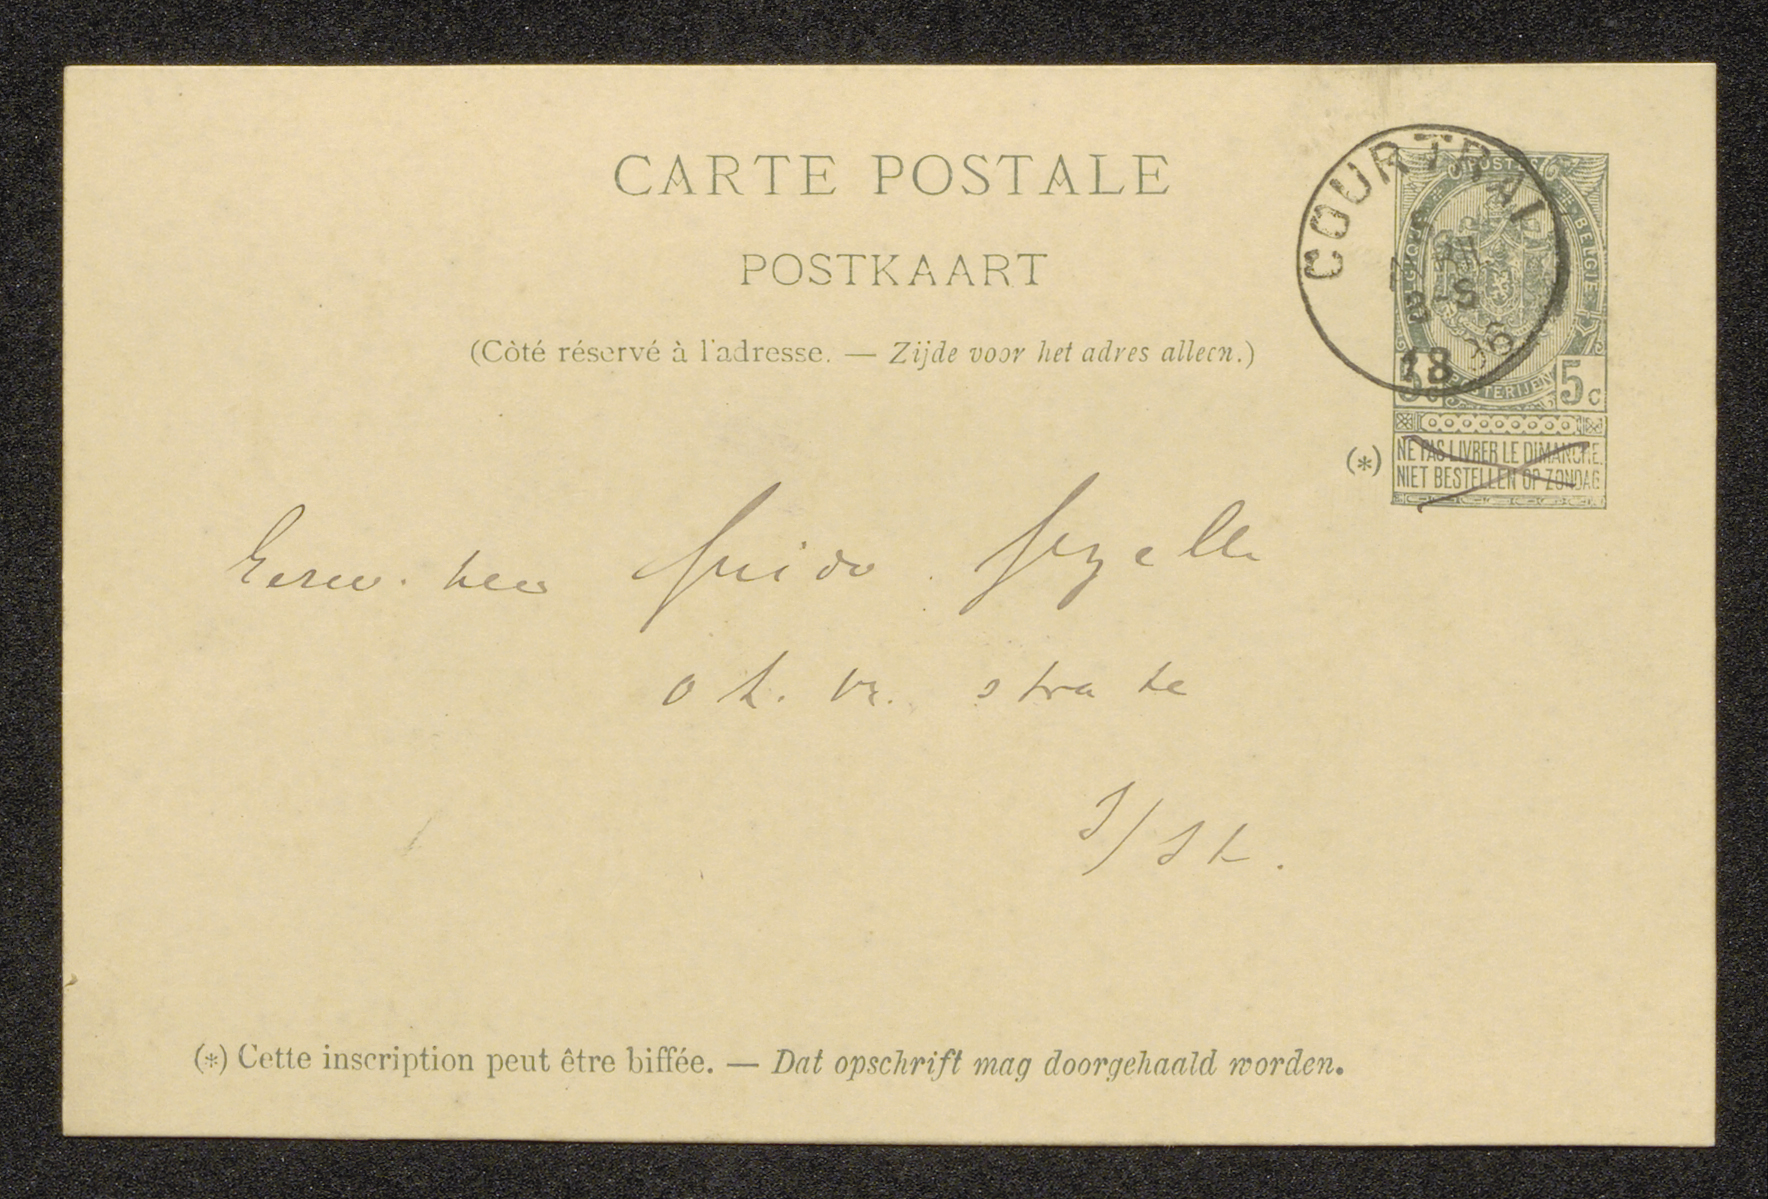 CARTE POSTALE
POSTKAART
(Côté réservé à l'adresse. — Zijde voor het adres alleen.)
COURTRAI
8-S
18 96
POSTES
BELGIQUE
BELGIE
POSTERIJEN
5c 5c
(*)
NE PAS LIVRER LE DIMANCHE.
NIET BESTELLEN OP ZONDAG
Eerw. heer Guido Gezelle
O. L. Vr. strate
(*) Cette inscription peut être biffée. — Dat opschrift mag doorgehaald worden.